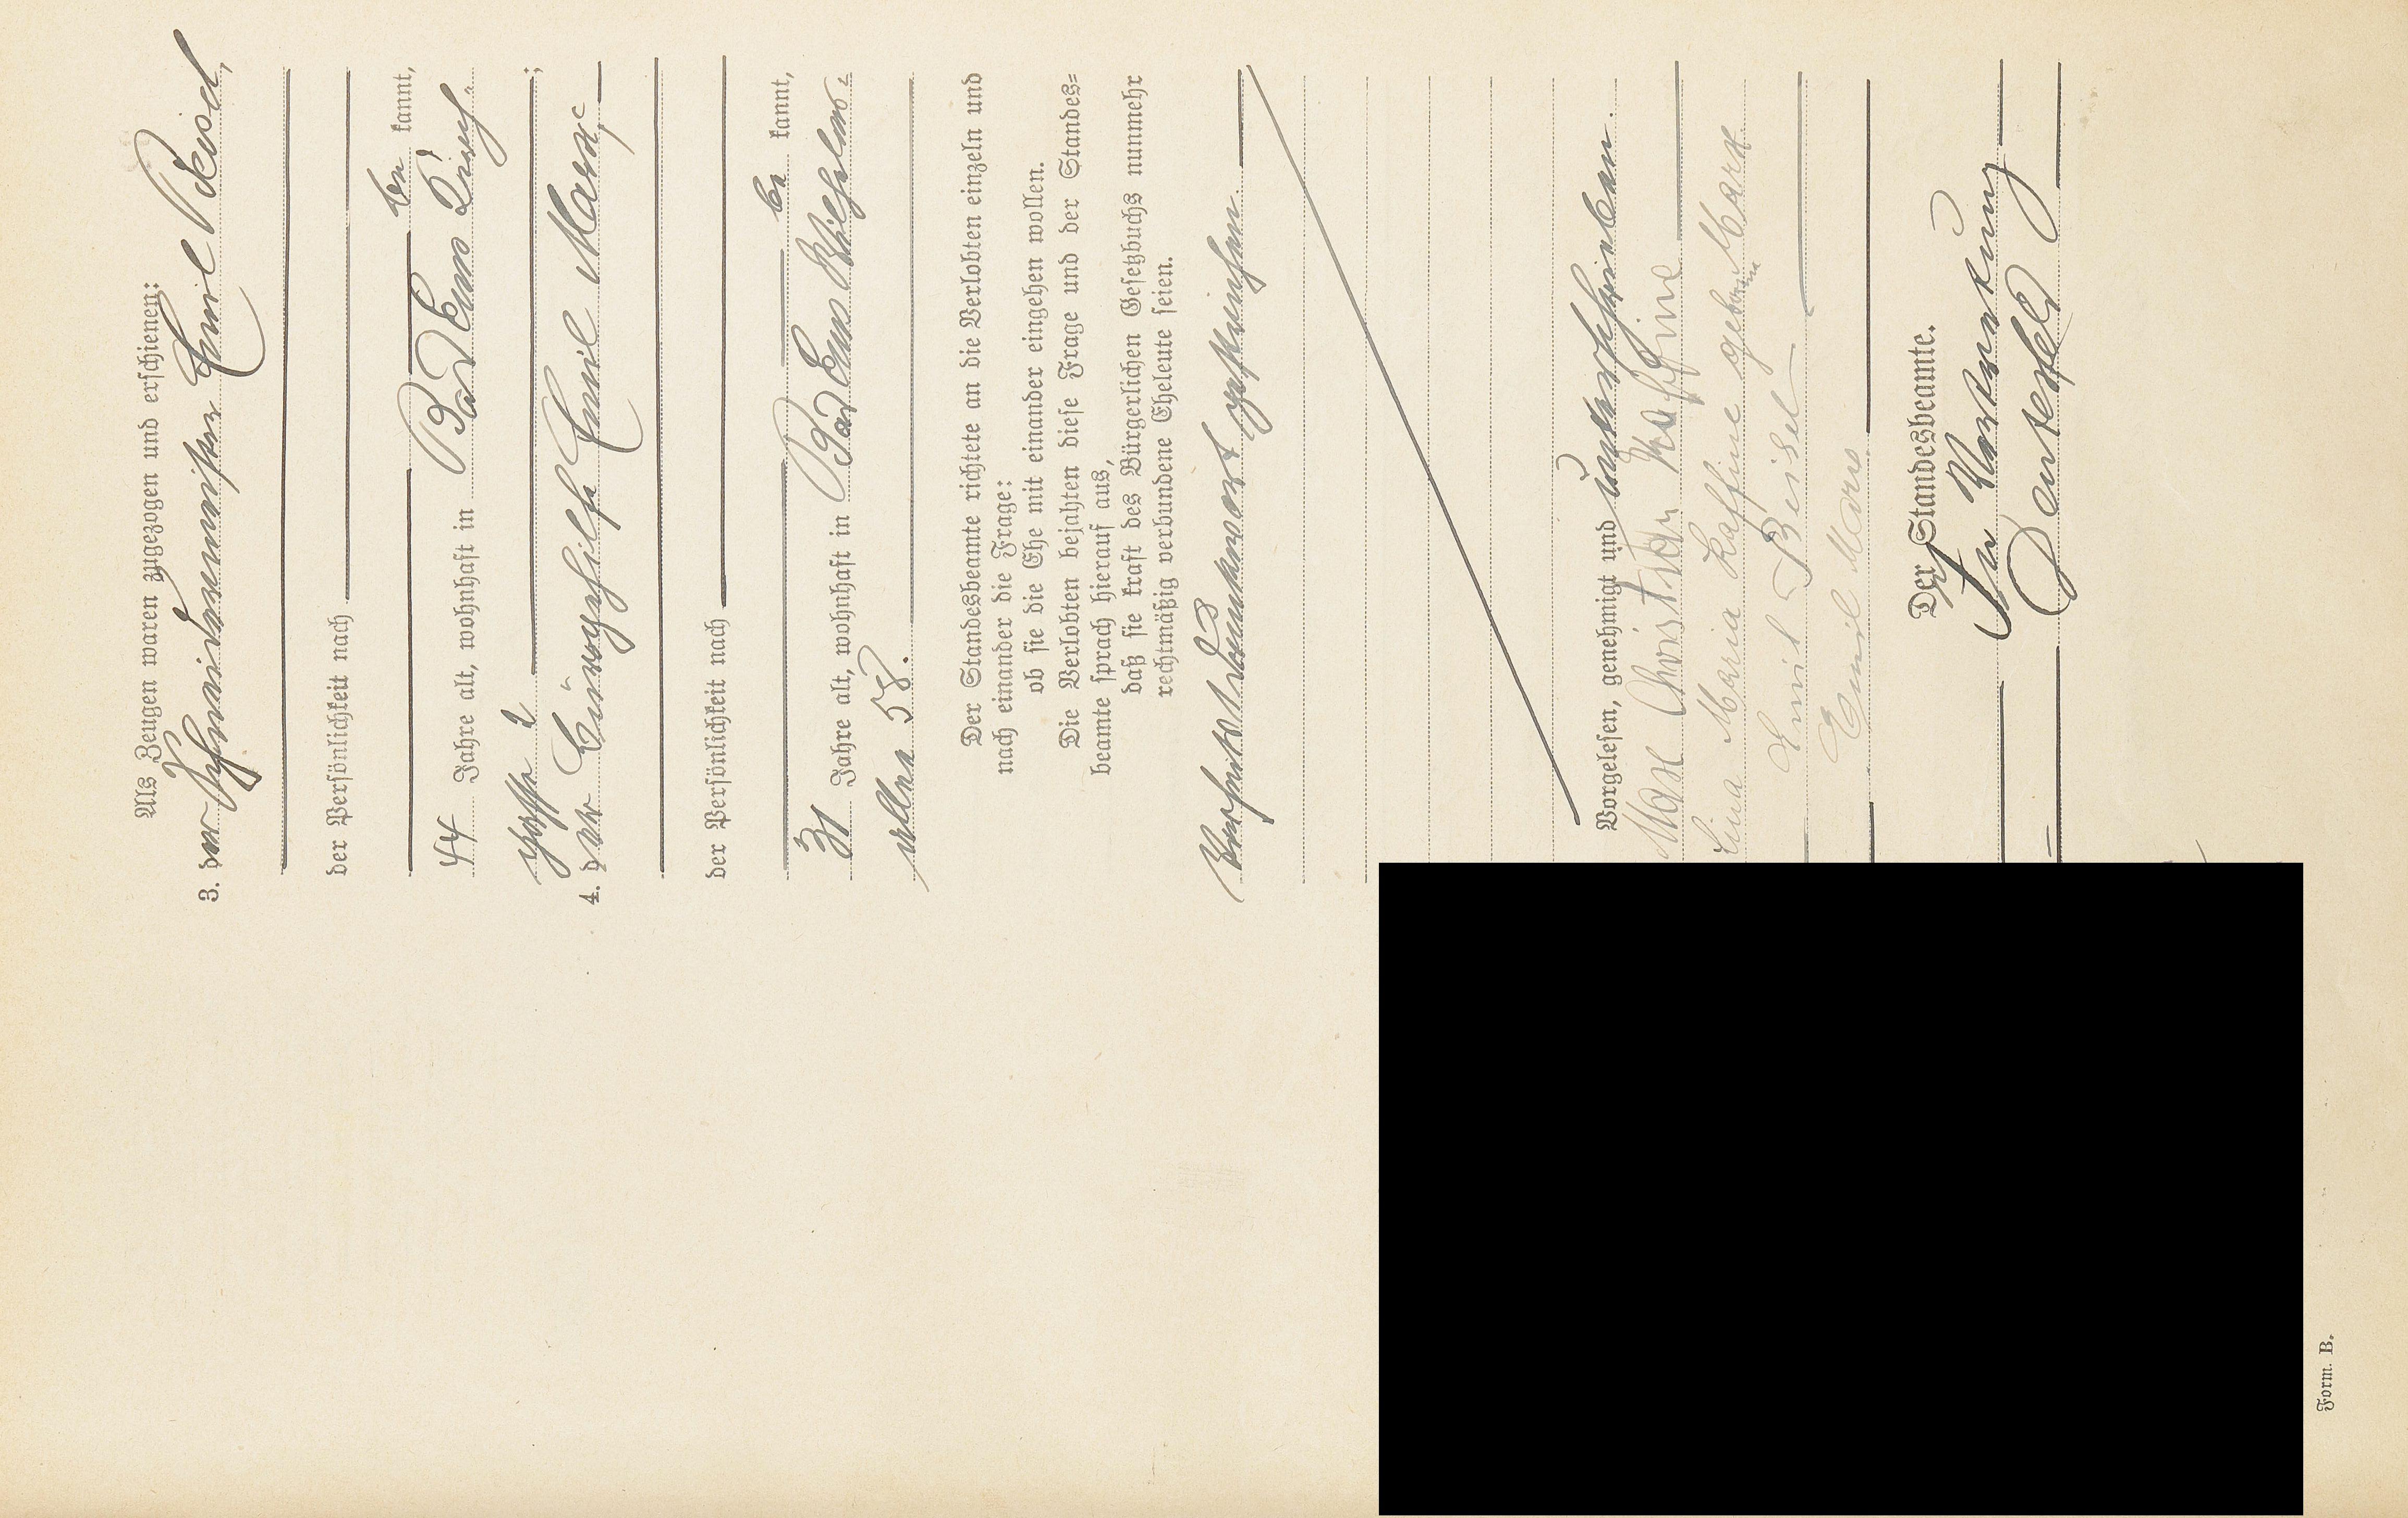 Als Zeugen waren zugezogen und erschienen:
3. der Schneidermeister Emil Beisel,
der Persönlichkeit nach
be kannt,
44 Jahre alt, wohnhaft in Bad Ems
gasse 2 ;
4. der Bürogehilfe Emil Marx,
der Persönlichkeit nach
be kannt,
31 Jahre alt, wohnhaft in Bad Ems Wilhelms-
allee 58.
Der Standesbeamte richtete an die Verlobten einzeln und
nach einander die Frage:
ob sie die Ehe mit einander eingehen wollen.
Die Verlobten bejahten diese Frage und der Standes=
beamte sprach hierauf aus,
daß sie kraft des Bürgerlichen Gesetzbuchs nunmehr
rechtmäßig verbundene Eheleute seien.
gestrichen.
Vorgelesen, genehmigt und unterschrieben.
Max Christian Kaffine
Lina Maria Kaffine geborene Marx
Emil Beisel
Emil Marx.
Der Standesbeamte.
In Vertretung
Form. B.